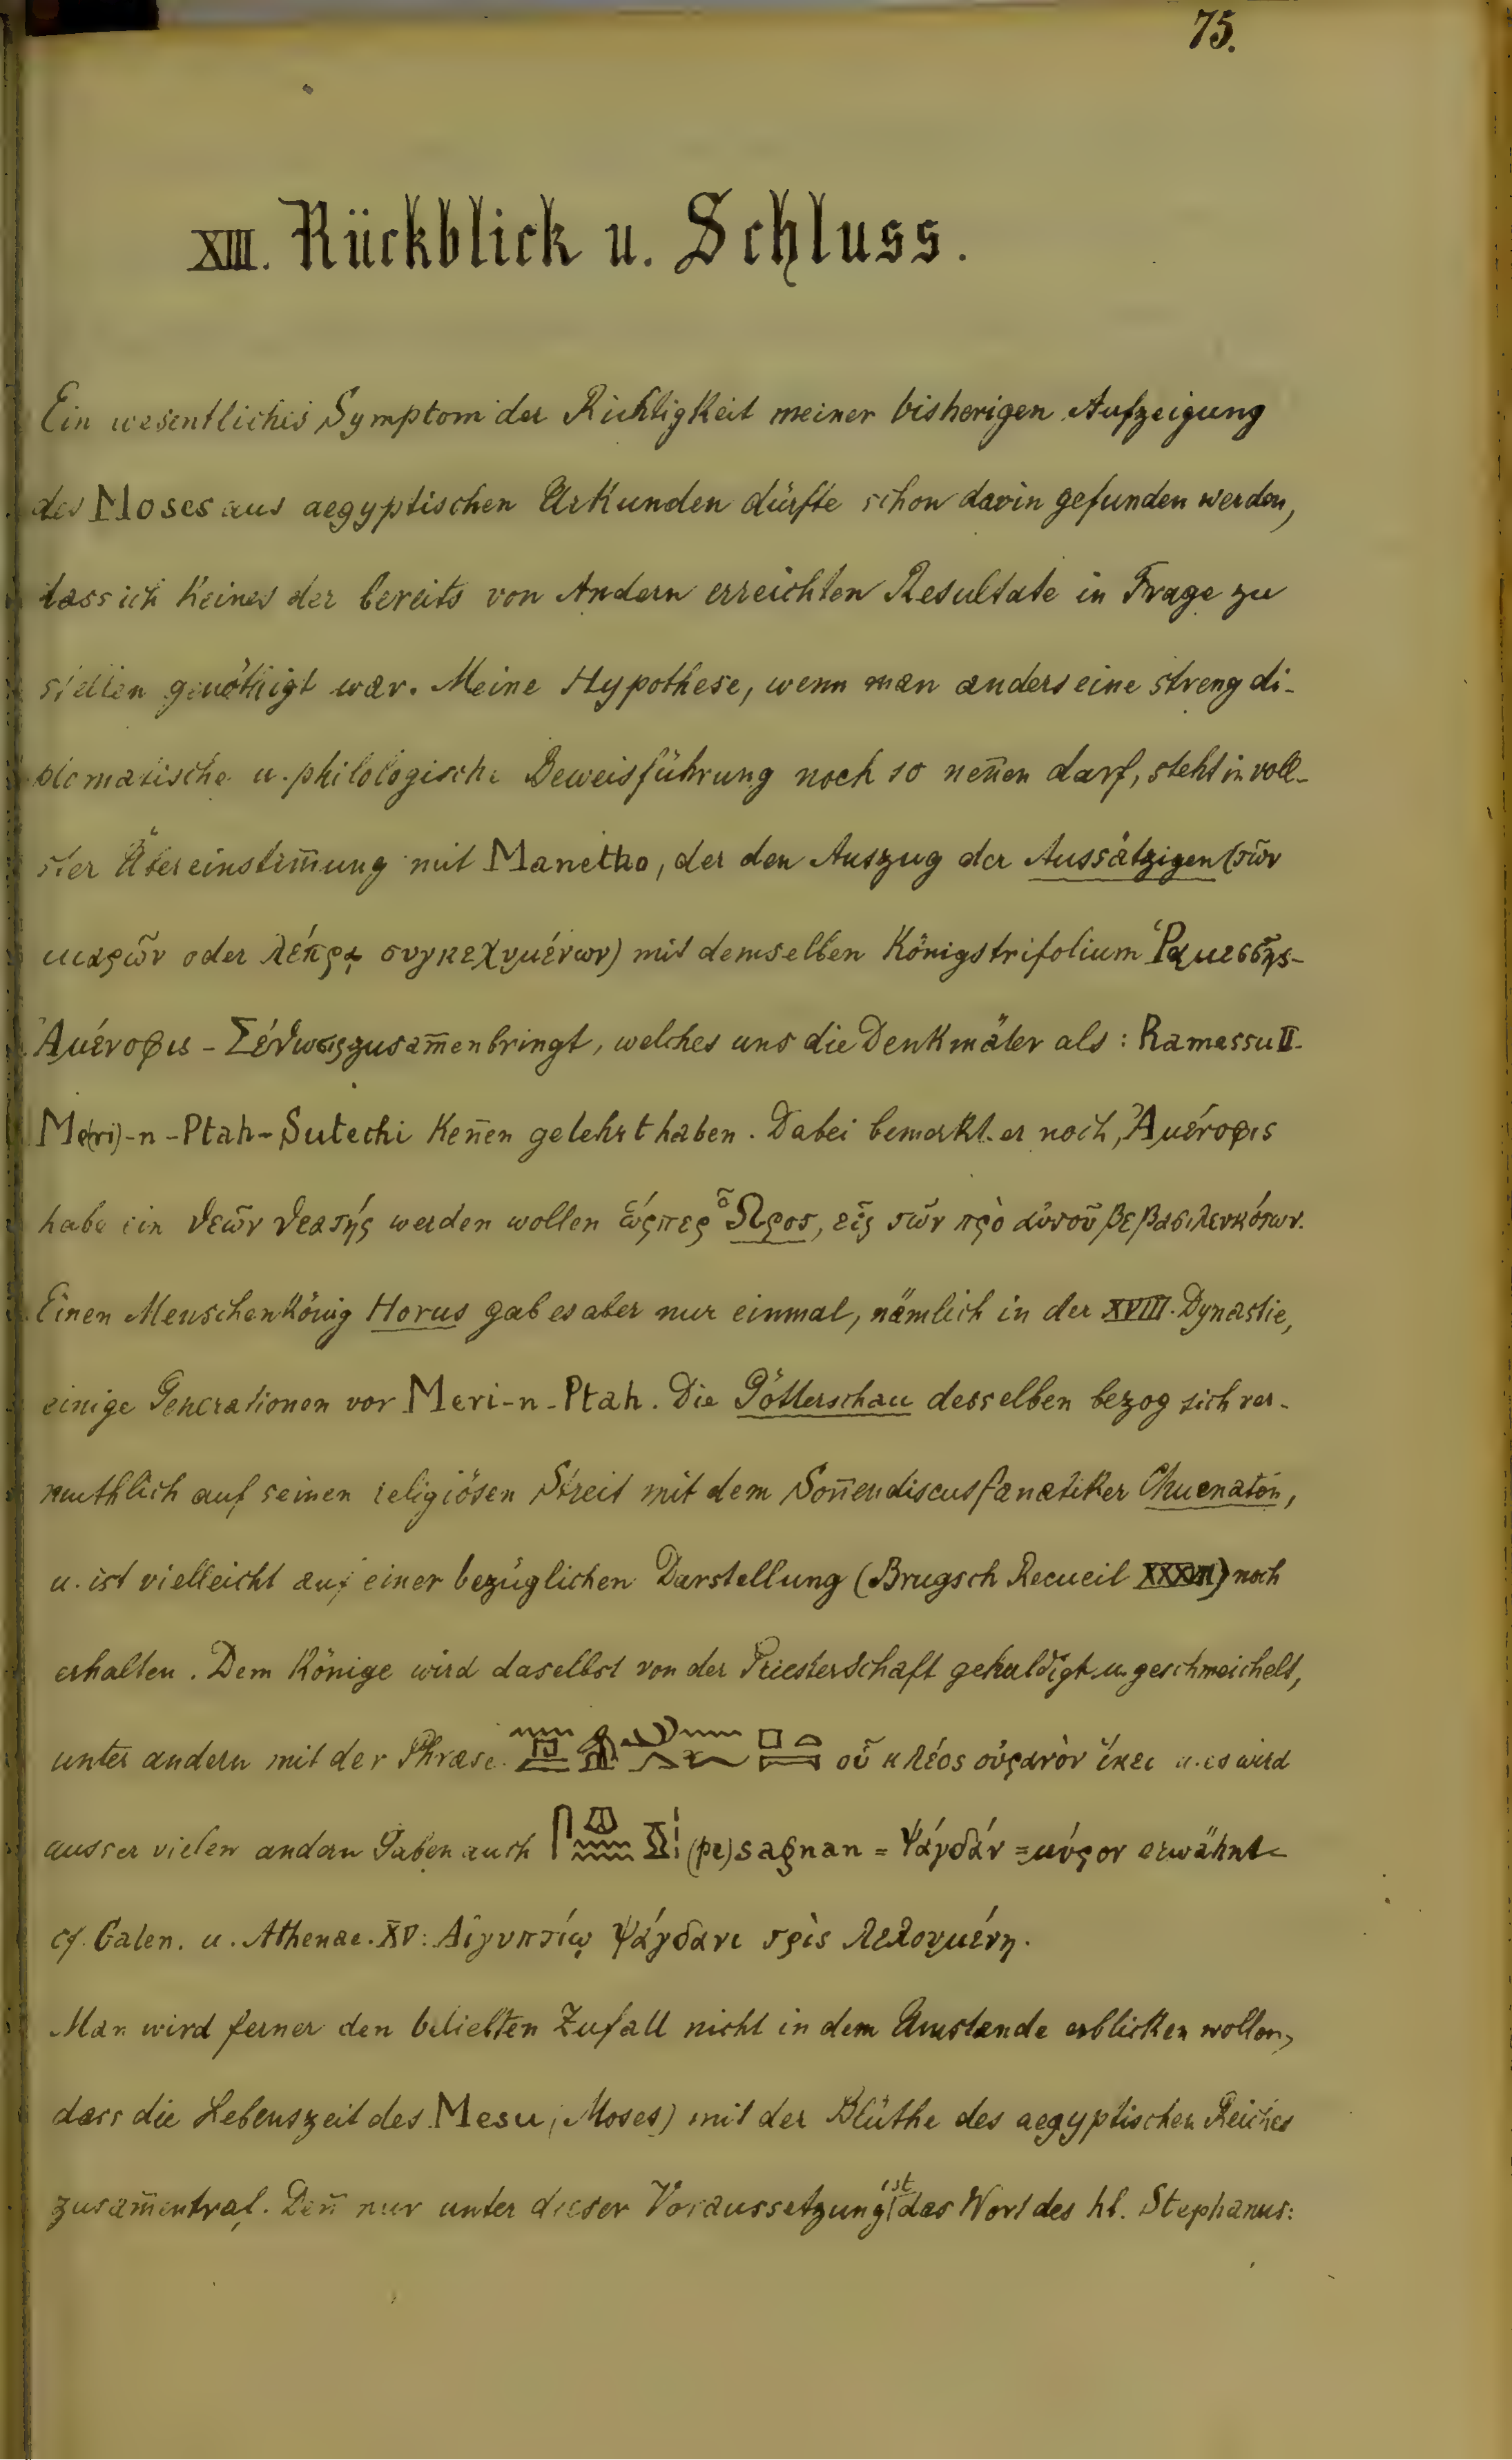 75.
XIII. Rückblick u. Schluss.
Ein wesentliches Symptom der Richtigkeit meiner bisherigen Aufzeigung
des Moses aus aegyptischen Urkunden dürfte schon darin gefunden werden,
dass ich keines der bereits von Andern erreichten Resultate in Frage zu
stellen genöthigt war. Meine Hypothese, wenn man anders eine streng di-
plomatische u. philologische Beweisführung noch so nen̄en darf, steht in voll-
ster Übereinstim̄ung mit Manetho, der den Auszug der Aussätzigen (τῶν
μιαρῶν oder λέπρᾳ συγκεχυμένων) mit demselben Königstrifolium Ῥαμεσσῆς-
Ἀμένοφις - Σέθωσις zusam̄enbringt, welches uns die Denkmäler als: Ramessu II-
Me(ri)-n-Ptah-Sutechi ken̄en gelehrt haben. Dabei bemerkt er noch, Ἀμένοφις
habe ein θεῶν θεατής werden wollen ὥςπερ ὁ Ὦρος, εἷς τῶν πρὸ αὐτοῦ βεβασιλευκότων.
Einen Menschenkönig Horus gab es aber nur einmal, nämlich in der XVIII. Dynastie,
einige Generationen vor Meri-n-Ptah. Die Götterschau desselben bezog sich ver-
muthlich auf seinen religiösen Streit mit dem Son̄endiscusfanatiker Chuenatén,
u. ist vielleicht auf einer bezüglichen Darstellung (Brugsch Recueil) noch
erhalten. Dem Könige wird daselbst von der Priesterschaft gehuldigt u. geschmeichelt,
unter andern mit der Phrase οὗ κλέος οὐρανὸν ἵκει u. es wird
ausser vielen andern Gaben auch (pe)sagnan = Ψάγδάν = μύρον erwähnt
cf. Galen. u. Athenae. XV: Αἰγυπτίῳ ψάγδανι τρὶς λελουμένη.
Man wird ferner den beliebten Zufall nicht in dem Umstande erblicken wollen,
dass die Lebenszeit des Mesu (Moses) mit der Blüthe des aegyptischen Reiches
zusam̄entraf. Den̄ nur unter dieser Voraussetzung ist das Wort des hl. Stephanus: